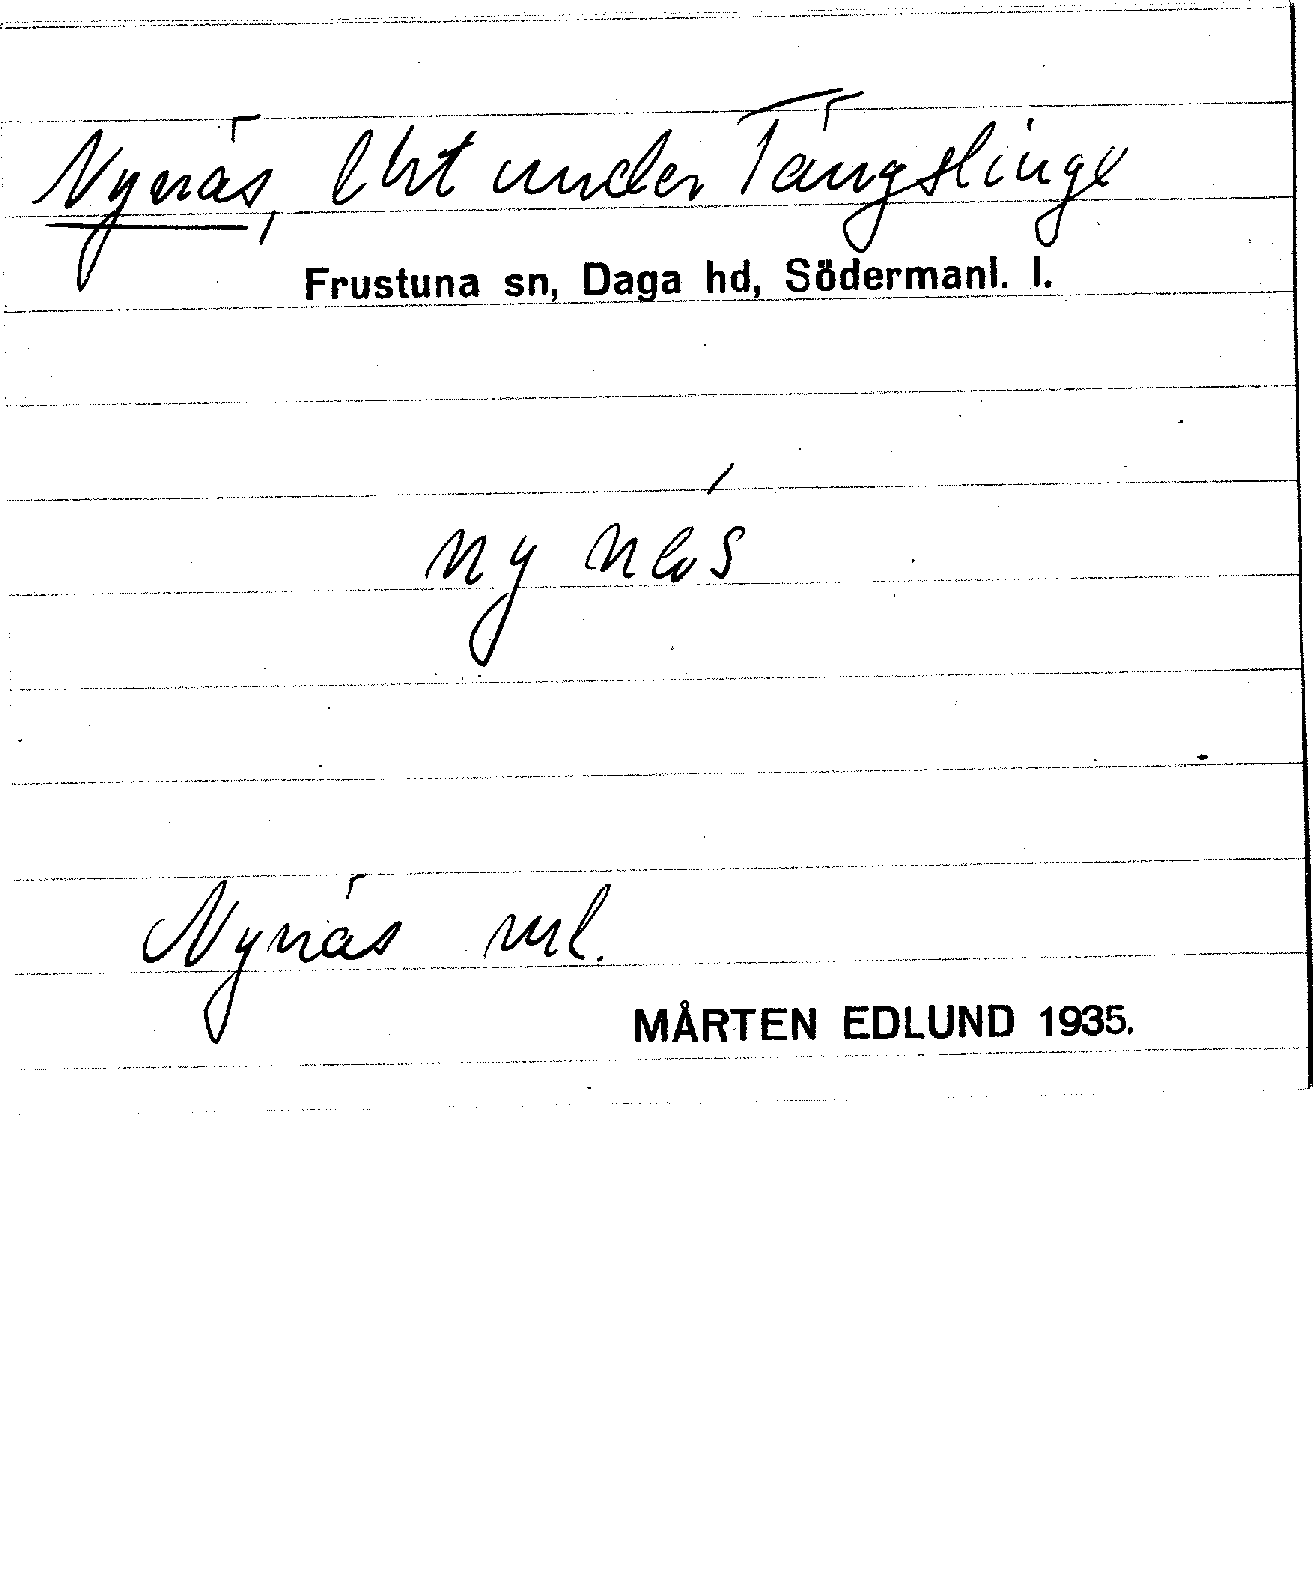 Nynäs, lht under Tängslinge
Frustuna sn, Daga hd, Södermanl. l.
ny näs
Nynäs ml.
MÅRTEN EDLUND 1935.